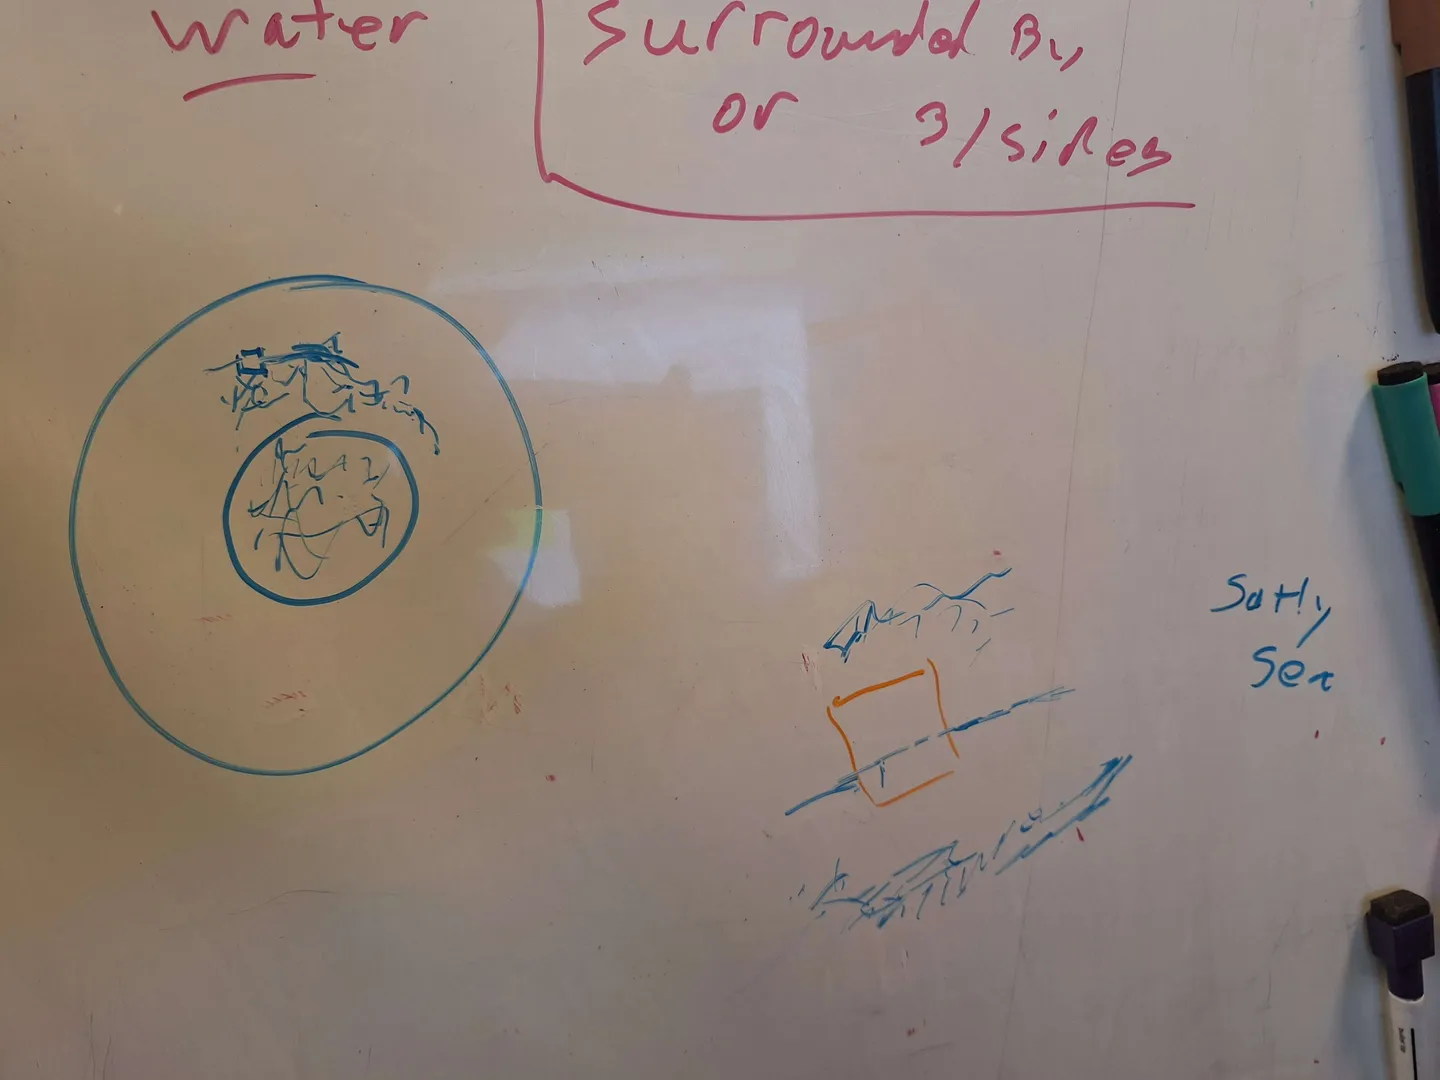 water
Surrounded By
or 3/sides
Salty
Sea